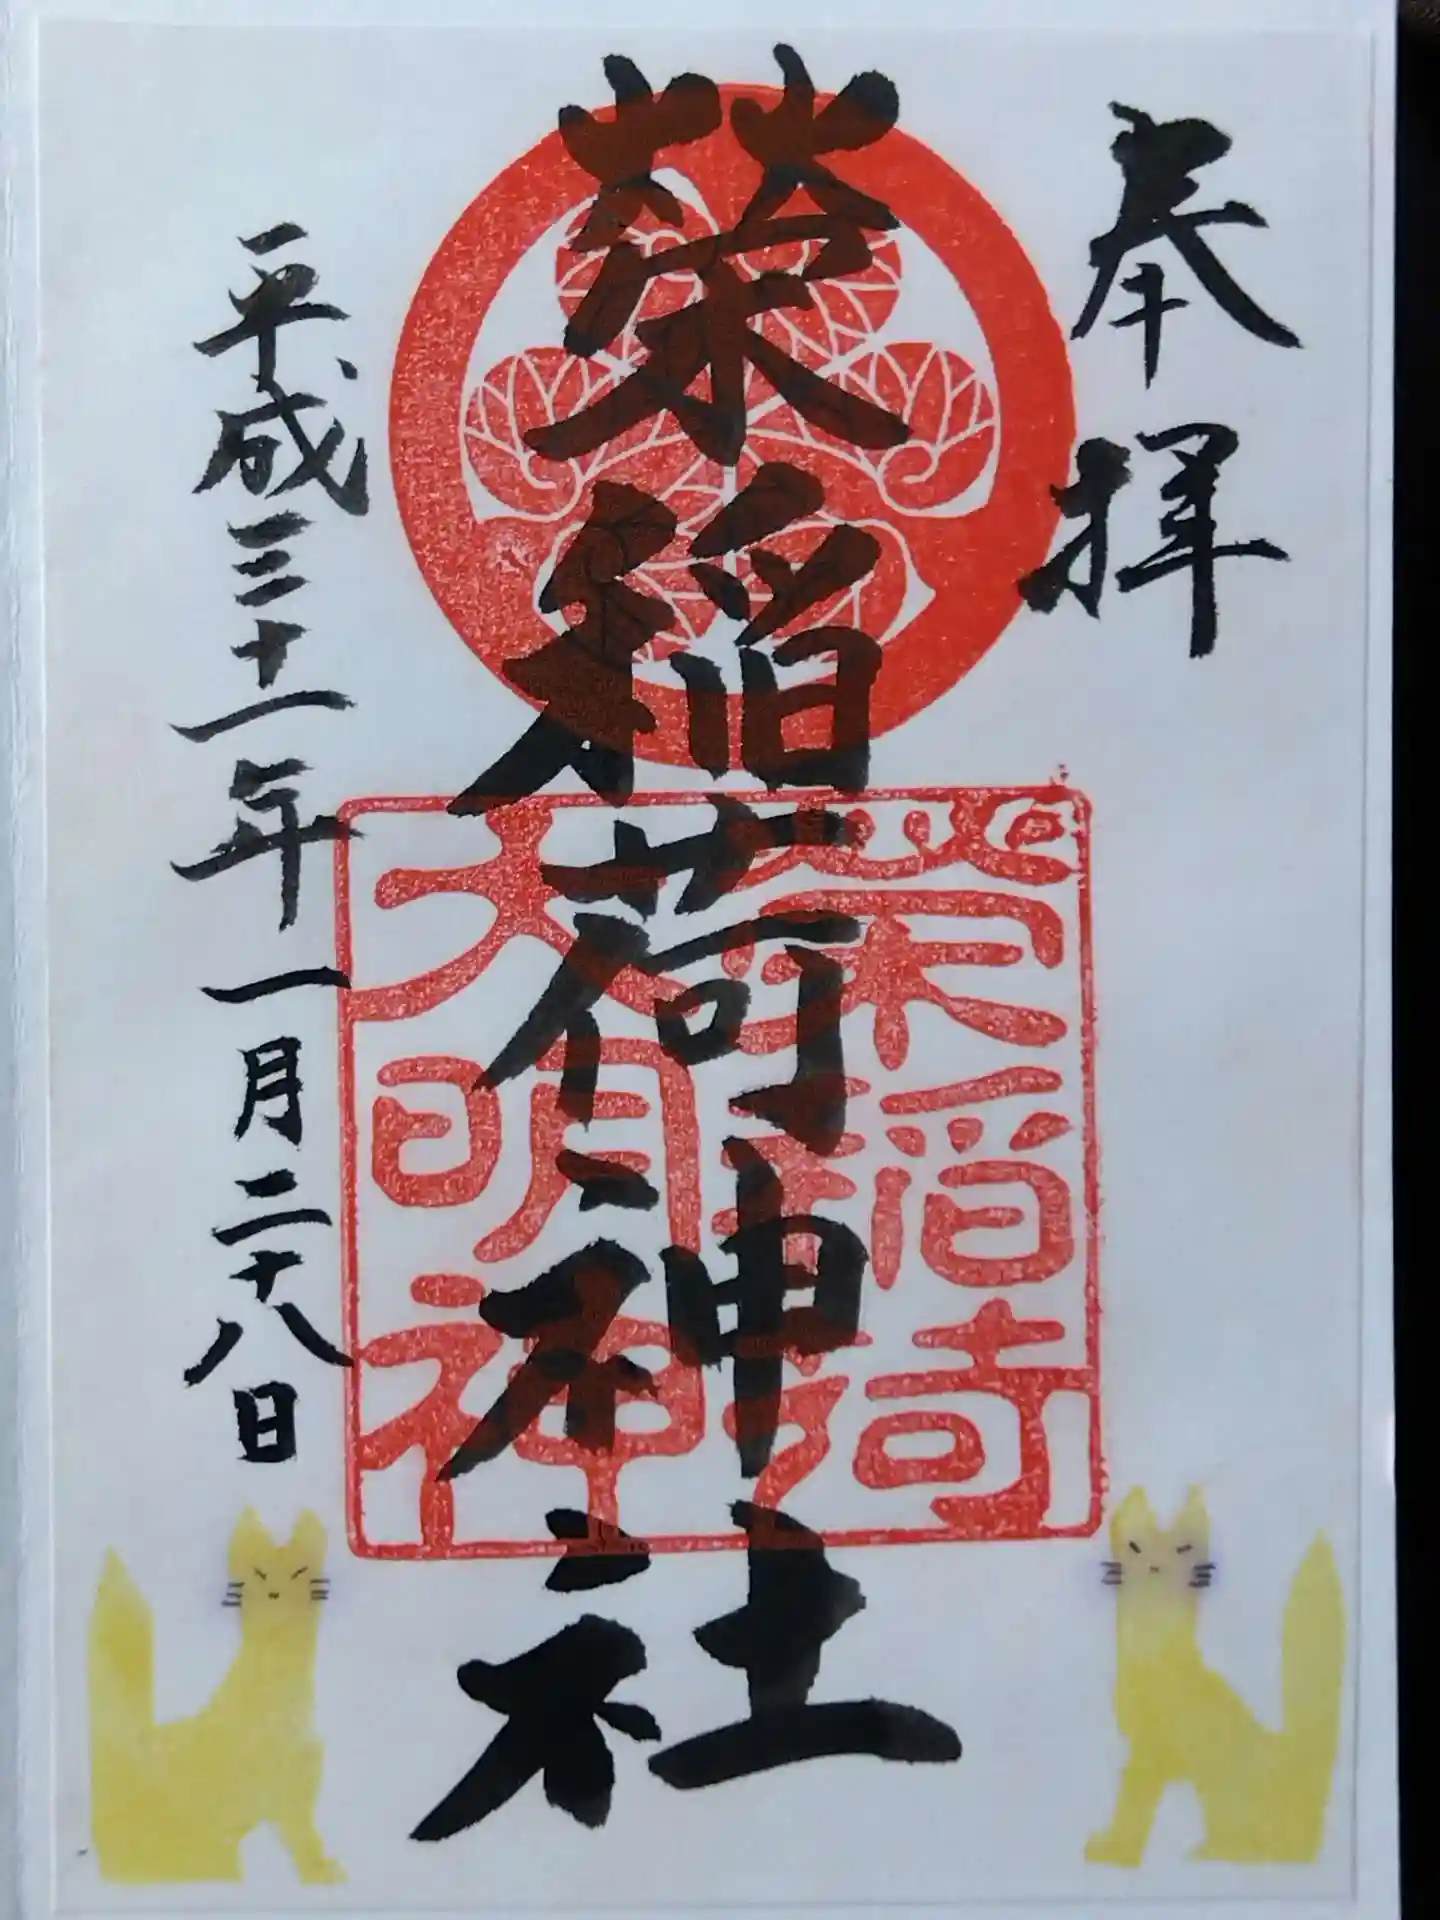 奉拝
榮稲荷神社
平成三十一年一月二十八日
榮稲荷
大明神